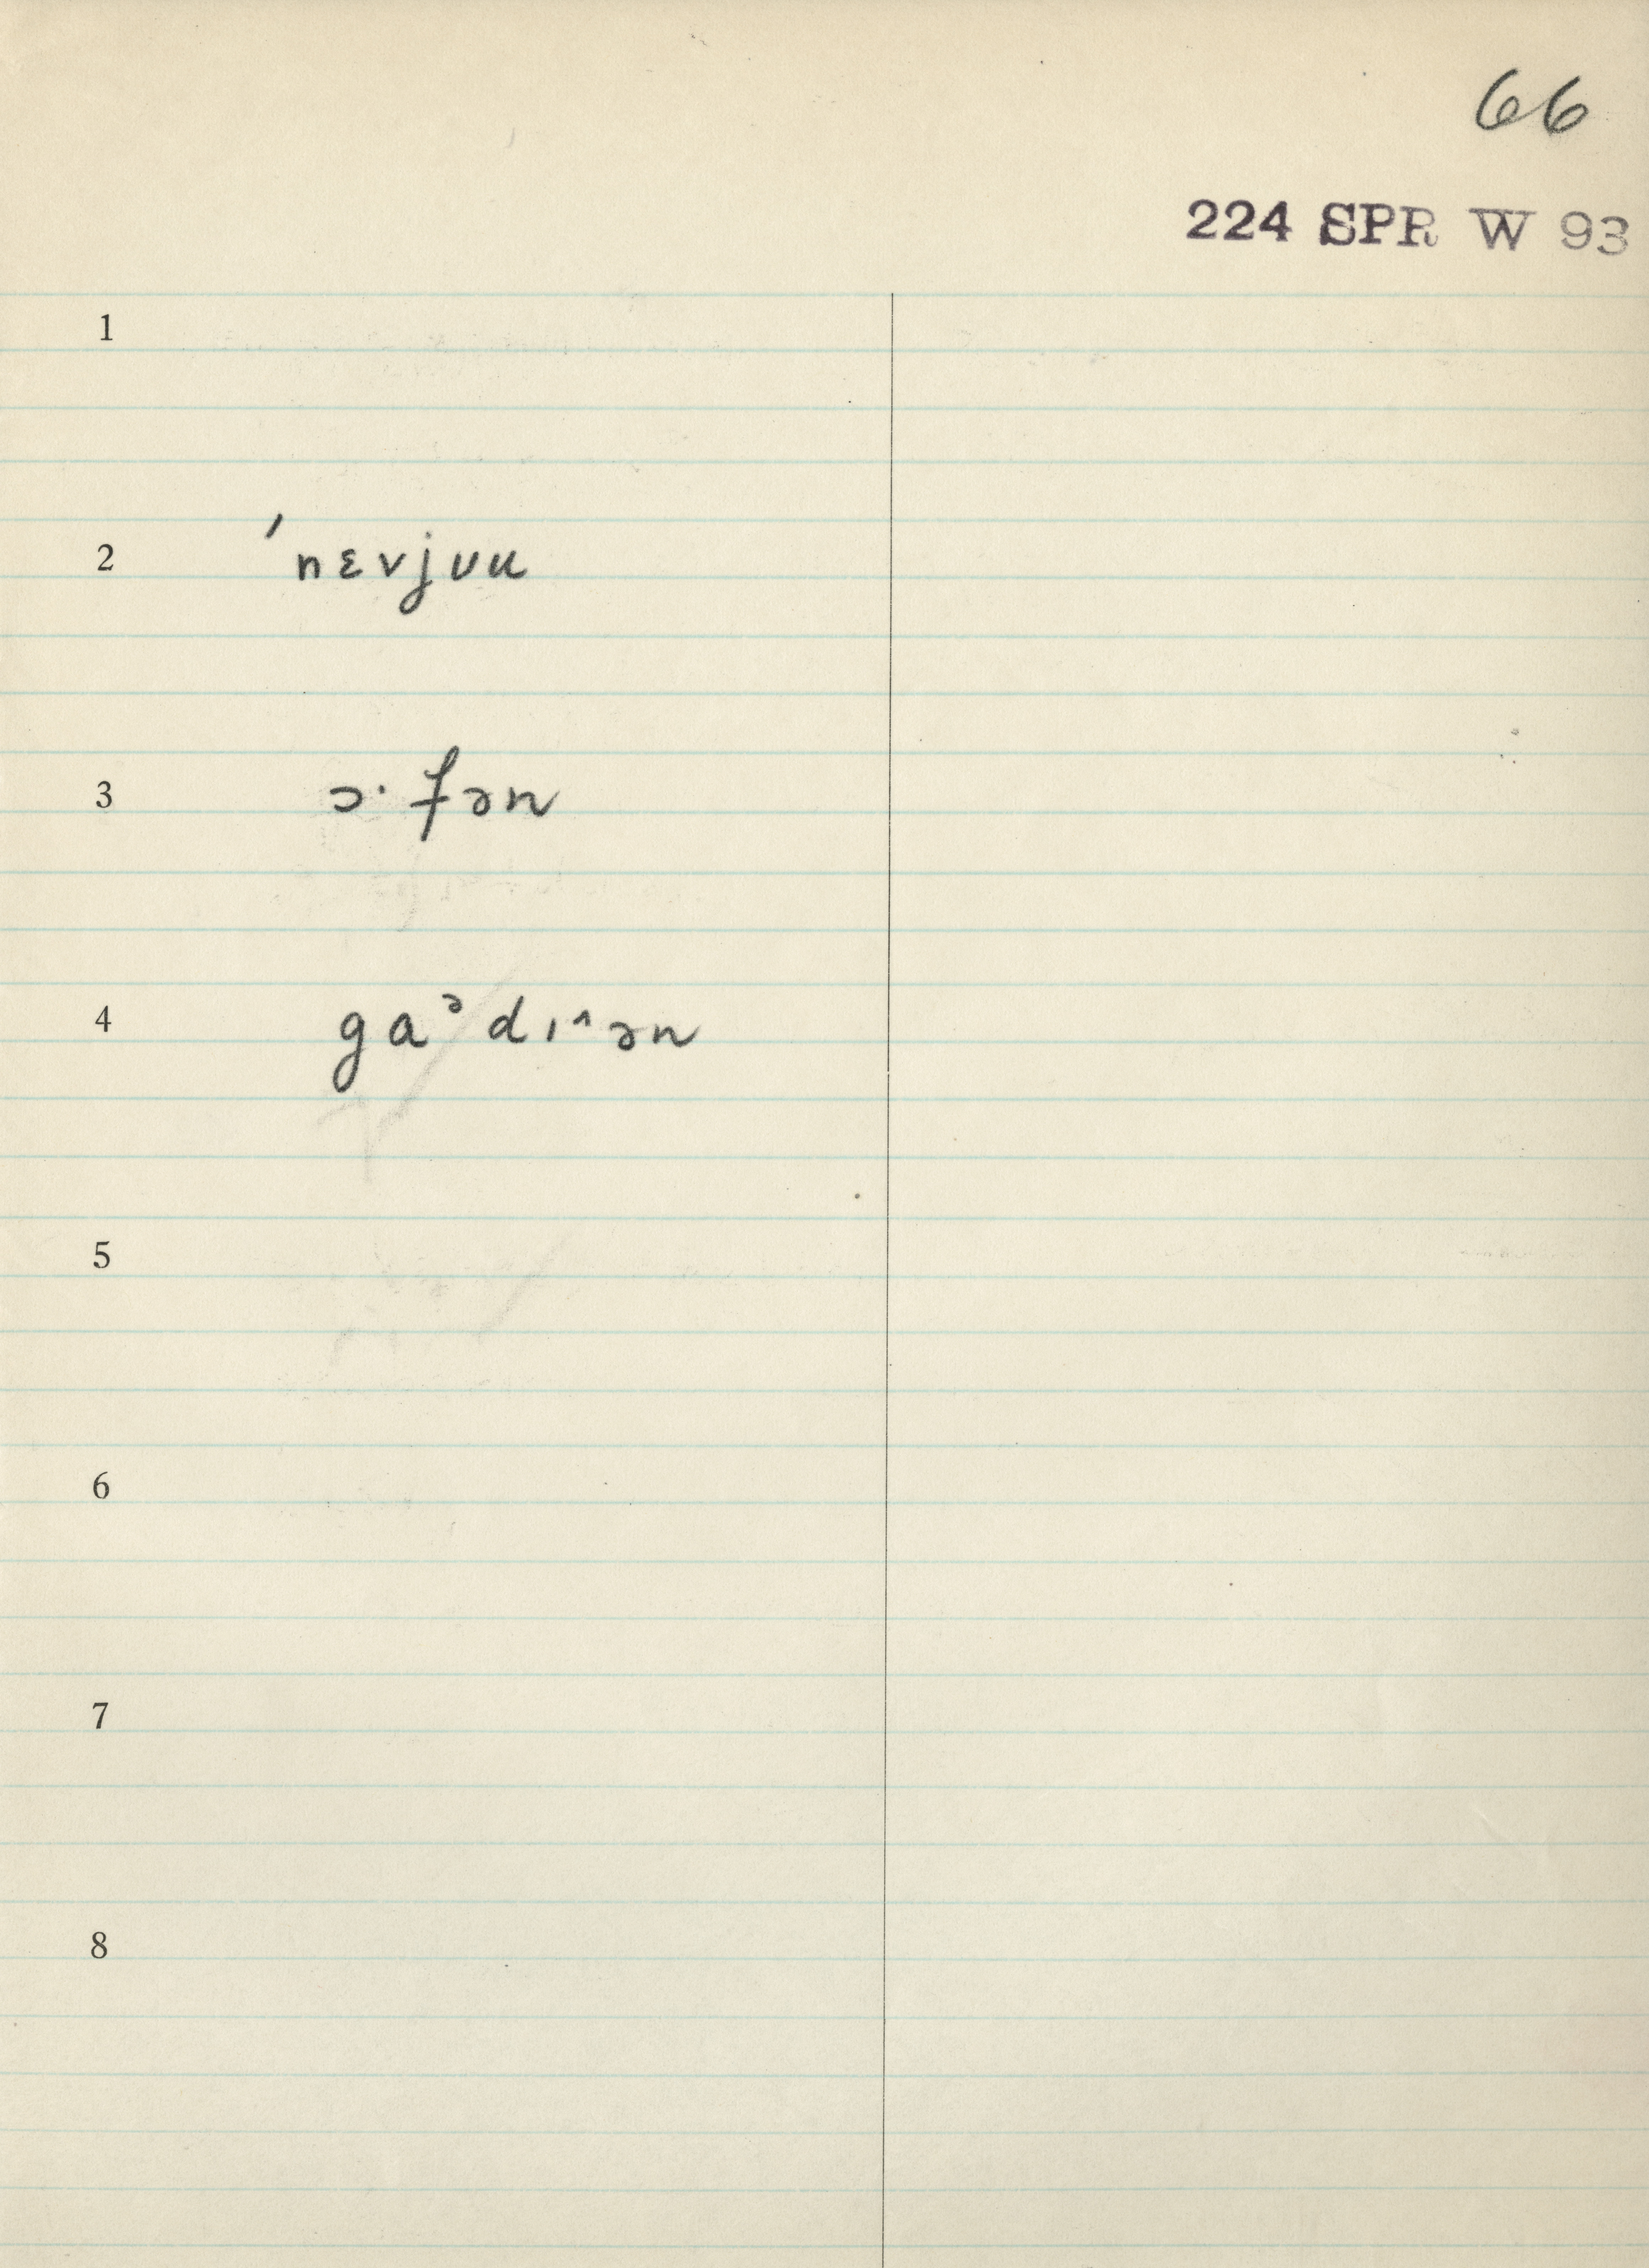 66
224 SPR W 93
1
2 ˈnɛvjʊu
3 ɔ·fən
4 gaᵊdɪ^ən
5
6
7
8